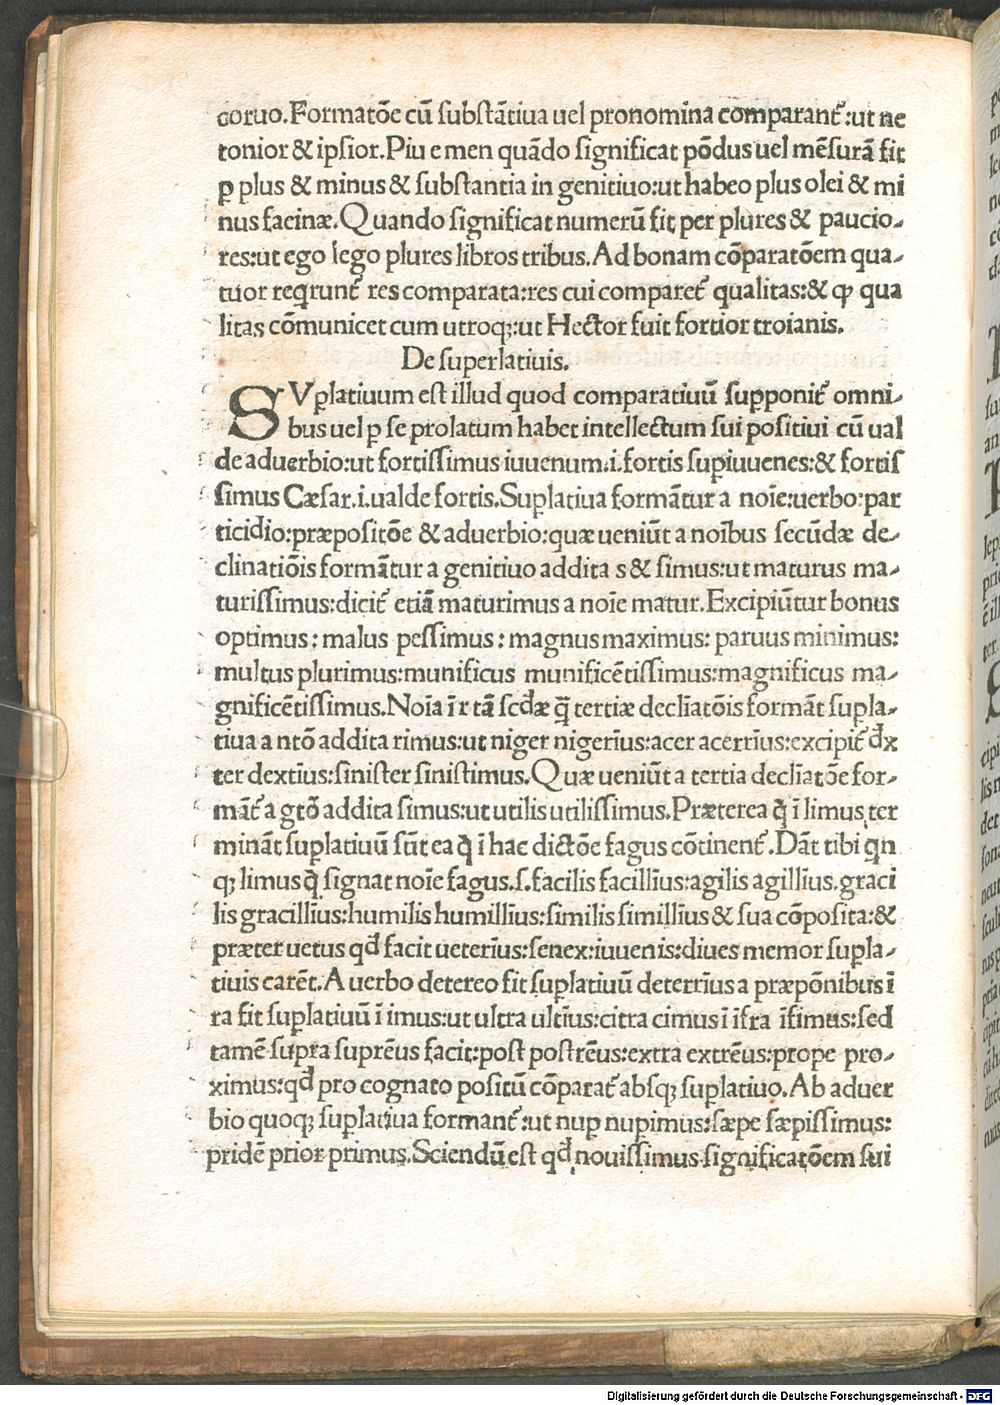 coruo.Formatõe cũ substãtiua uel pronomina comparant̃:ut ne
ronior & ipsior.Piu e men quãdo significat põdus uel mẽsurã fit
ꝑ plus & minus & substantia in genitiuo:ut habeo plus olei & mi
nus facinæ.Quando significat numerũ fit per plures & paucio-
res:ut ego lego plures libros tribus.Ad bonam cõparatõem qua-
tuor reqrunt̃ res comparata:res cui comparet̃ qualitas:& ꝙ qua
litas cõmunicet cum utroqꝫ:ut Hector fuit fortior troianis.
De superlatiuis.
SVꝑlatiuum est illud quod comparatiuũ supponit̃ omni-
bus uel ꝑ se prolatum habet intellectum sui positiui cũ ual
de aduerbio:ut fortissimus iuuenum.i.fortis suꝑiuuenes:& fortis
simus Cæsar.i.ualde fortis.Suꝑlatiua formãtur a noĩe:uerbo:par
ticidio:præpositõe & aduerbio:quæ ueniũt a noĩbus secũdæ de-
clinatiõis formãtur a genitiuo addita s & simus:ut maturus ma-
turissimus:dicit̃ etiã maturimus a noĩe matur.Excipiũtur bonus
optimus: malus pessimus: magnus maximus: paruus minimus:
multus plurimus:munificus munificẽtissimus:magnificus ma-
gnificẽtissimus.Noĩa ĩ r tã scdæ q̃ tertiæ decliatõis formãt suꝑla-
tiua a ntõ addita rimus:ut niger nigerĩus:acer acerrĩus:excipit̃ dx
ter dextĩus:sinister sinistimus.Quæ ueniũt a tertia decliatõe for-
mãt̃ a gtõ addita simus:ut utilis utilissimus.Præterea q̃ ĩ limus ter
minãt suꝑlatiuũ sũt ea q̃ ĩ hac dictõe fagus cõtinent̃.Dãt tibi qn
qꝫ limus q̃ signat noĩe fagus.s.facilis facillĩus:agilis agillĩus.graci
lis gracillĩus:humilis humillĩus:similis simillĩus & sua cõposita:&
præter uetus qd̃ facit ueterĩus:senex:iuuenis:diues memor suꝑla-
tiuis carẽt.A uerbo detereo fit suꝑlatiuũ deterrĩus a præpõnibus ĩ
ra fit suꝑlatiuũ ĩ imus:ut ultra ultĩus:citra cimus ĩ ĩfra ĩfimus:sed
tamẽ supra suprẽus facit:post postrẽus:extra extrẽus:prope pro-
ximus:qd̃ pro cognato positũ cõparat̃ absqꝫ suꝑlatiuo.Ab aduer
bio quoqꝫ suꝑlatiua formant̃:ut nuꝑ nuꝑimus:sæpe sæpissimus:
pridẽ prior primus.Sciendũ est qd̃ nouissimus significatõem sui
Digitalisierung gefördert durch die Deutsche Forschungsgemeinschaft - DFG